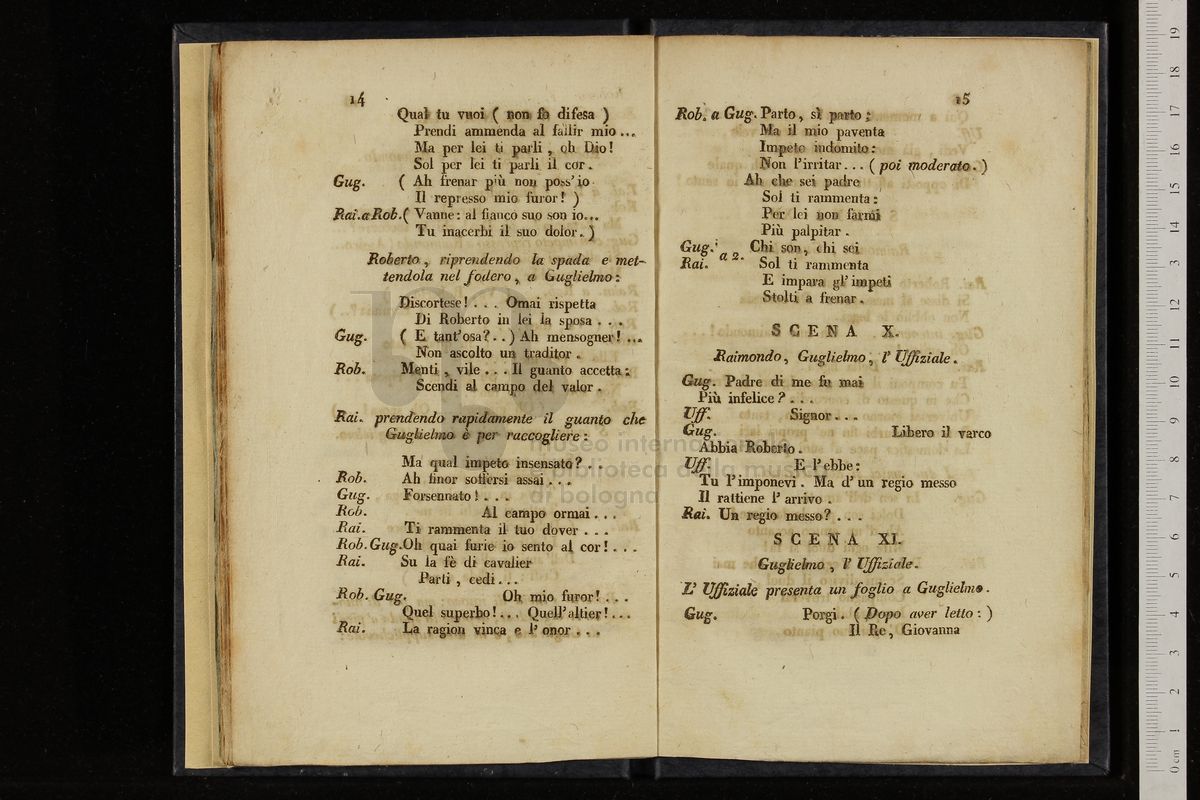 14
Qual tu vuoi ( non fo difesa )
Prendi ammenda al fallir mio...
Ma per lei ti parli, oh Dio!
Sol per lei ti parli il cor.
Gug. ( Ah frenar più non poss'io
Il represso mio furor! )
Rai.a Rob.( Vanne: al fianco suo son io...
Tu inacerbi il suo dolor. )
Roberto, riprendendo la spada e met-
tendola nel fodero, a Guglielmo:
Discortese! . . . Omai rispetta
Di Roberto in lei la sposa . . .
Gug. ( E tant'osa?. . ) Ah mensogner! ...
Non ascolto un traditor.
Rob. Menti, vile . . . Il guanto accetta:
Scendi al campo del valor.
Rai. prendendo rapidamente il guanto che
Guglielmo è per raccogliere:
Ma qual impeto insensato? . .
Rob. Ah finor soffersi assai . . .
Gug. Forsennato! . . .
Rob. Al campo ormai . . .
Rai. Ti rammenta il tuo dover . . .
Rob. Gug. Oh quai furie io sento al cor! . . .
Rai. Su la fè di cavalier
Parti, cedi...
Rob. Gug. Oh mio furor! . . .
Quel superbo!... Quell'altier!...
Rai. La ragion vinca e l'onor . . .
15
Rob. a Gug. Parto, sì parto:
Ma il mio paventa
Impeto indomito:
Non l'irritar... ( poi moderato. )
Ah che sei padre
Sol ti rammenta:
Per lei non farmi
Più palpitar.
Gug. a 2. Chi son, chi sei
Rai. Sol ti rammenta
E impara gl'impeti
Stolti a frenar.
SCENA X.
Raimondo, Guglielmo, l'Uffiziale.
Gug. Padre di me fu mai
Più infelice? . . .
Uff. Signor . . .
Gug. Libero il varco
Abbia Roberto.
Uff. E l'ebbe:
Tu l'imponevi. Ma d'un regio messo
Il rattiene l'arrivo.
Rai. Un regio messo? . . .
SCENA XI.
Guglielmo, l'Uffiziale.
L'Uffiziale presenta un foglio a Guglielmo.
Gug. Porgi. ( Dopo aver letto: )
Il Re, Giovanna
museo internazionale
e biblioteca della musica
di bologna
0 cm 1 2 3 4 5 6 7 8 9 10 11 12 13 14 15 16 17 18 19